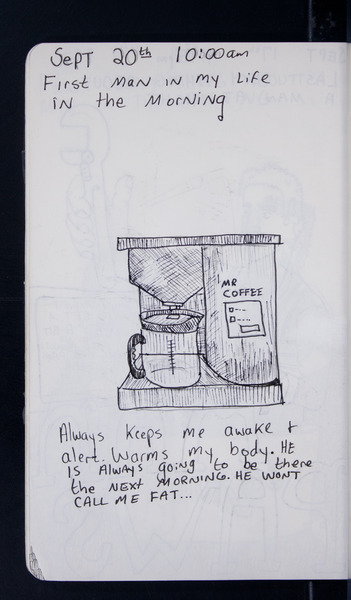 Sept 20th 10:00am
First Man in my Life
in the Morning
MR
COFFEE
Always keeps me awake &
alert. Warms my body. HE
is Always going to be there
the NEXT MORNING. HE WONT
CALL ME FAT...